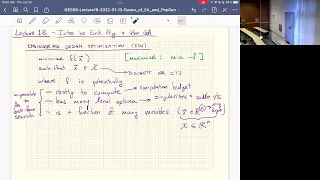 IEE598-Lecture1B-2022-01-13-Basics_of_EA_and_PopGen
Lecture 1B - Intro to Evol. Alg. & the GA
ENGINEERING DESIGN OPTIMIZATION (EDO)
minimize f(x⃗) [maximize: min -f]
such that x⃗ ∈ X
DISCRETE OR CTS
where f is potentially
- costly to compute → computation budget
- has many local optima → singularities + saddle pts
- is a function of many variables (x⃗ ∈ ℝⁿ
impossible to do brute-force search
X ⊆ ℝⁿ